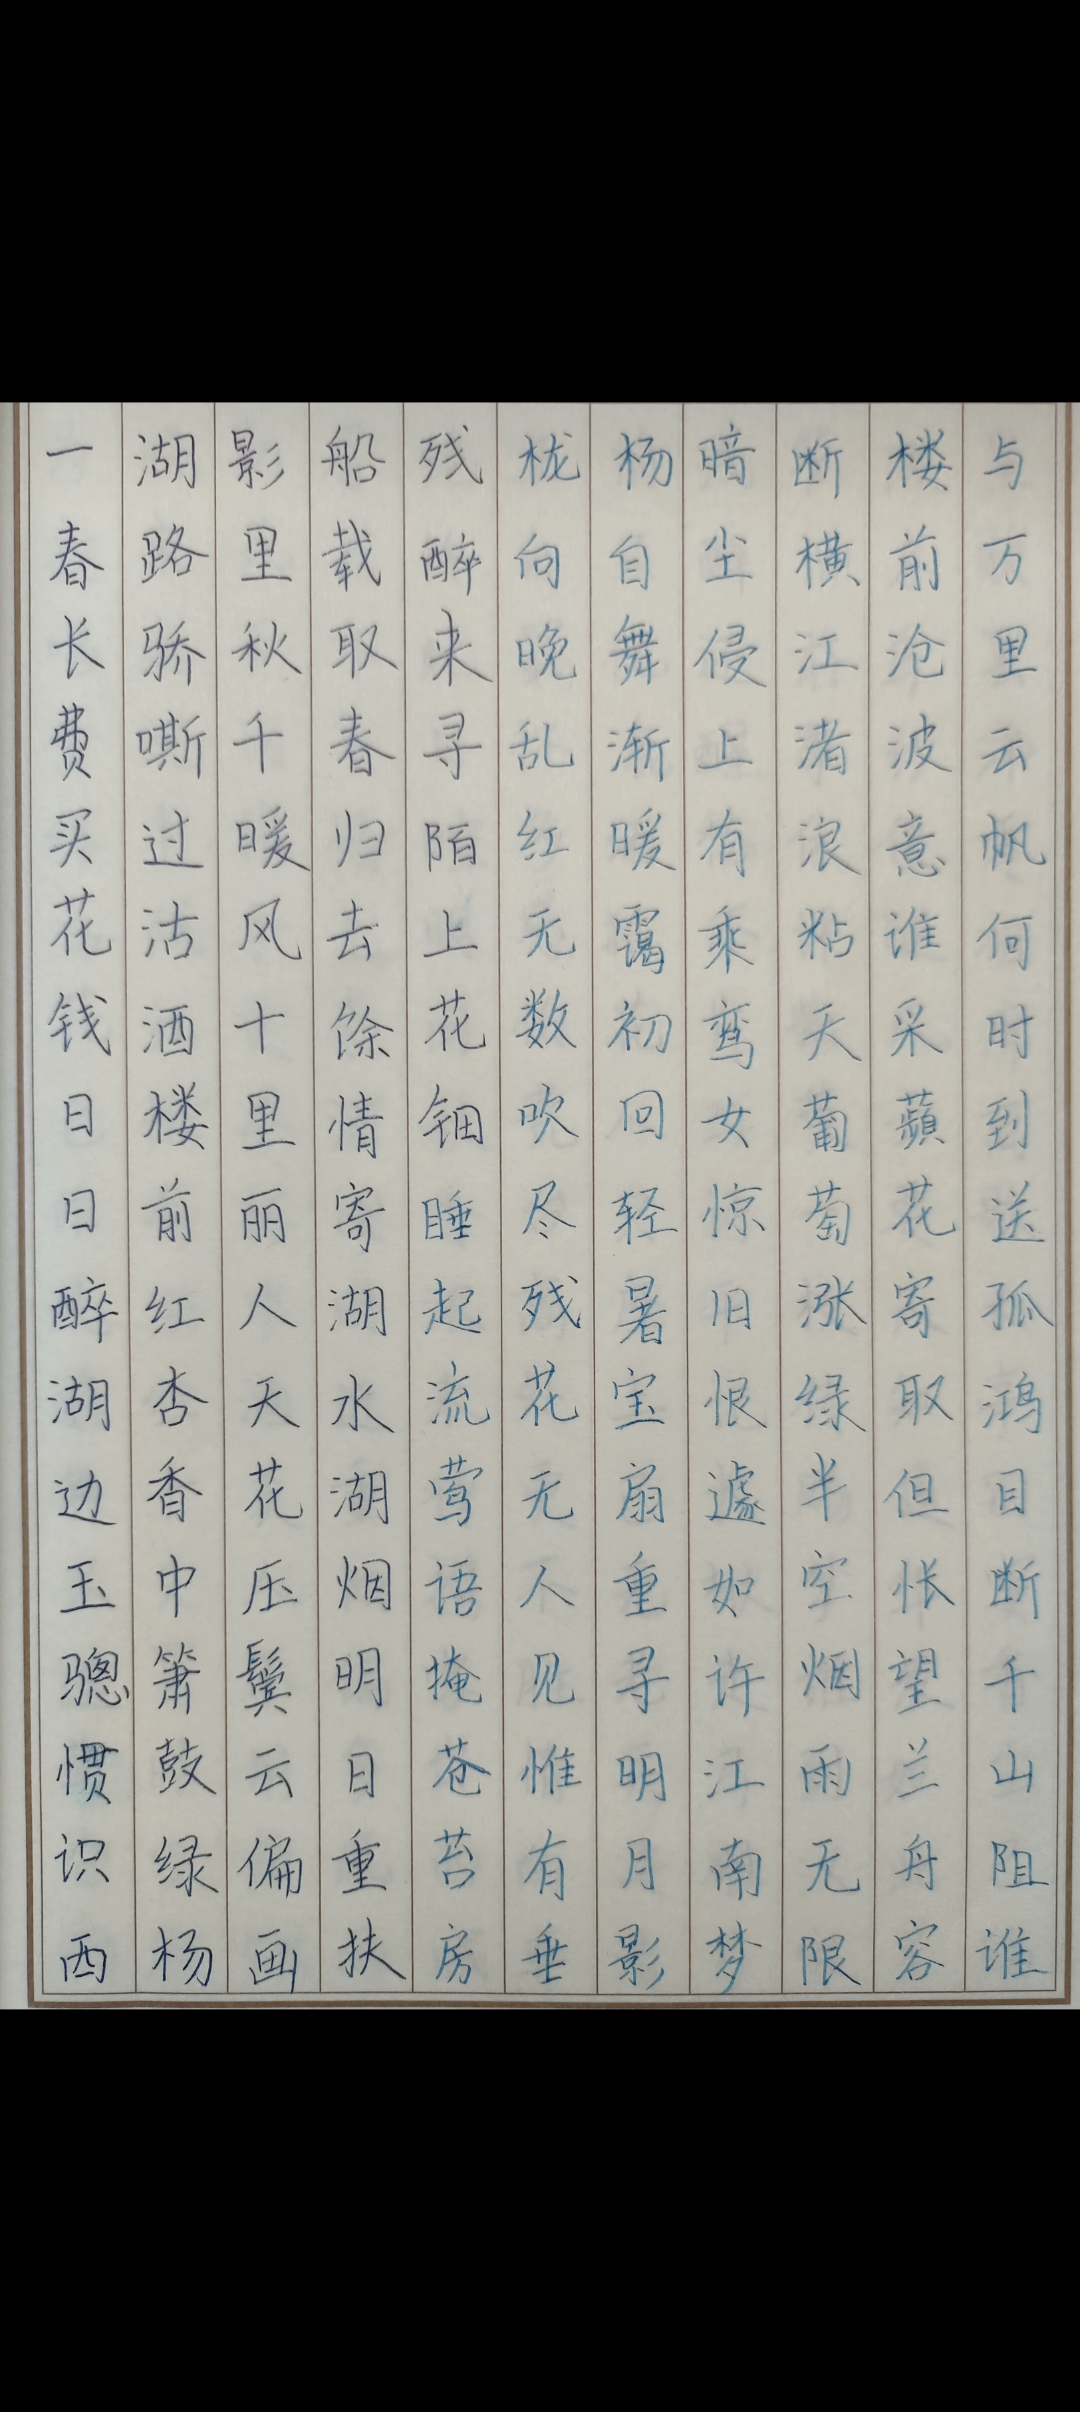 一春长费买花钱日日醉湖边玉骢惯识西
湖路骄嘶过沽酒楼前红杏香中箫鼓绿杨
影里秋千暖风十里丽人天花压鬓云偏画
船载取春归去馀情寄湖水湖烟明日重扶
残醉来寻陌上花钿睡起流莺语掩苍苔房
栊向晚乱红无数吹尽残花无人见惟有垂
杨自舞渐暖霭初回轻暑宝扇重寻明月影
暗尘侵上有乘鸾女惊旧恨遽如许江南梦
断横江渚浪粘天葡萄涨绿半空烟雨无限
楼前沧波意谁采蘋花寄取但怅望兰舟容
与万里云帆何时到送孤鸿目断千山阻谁